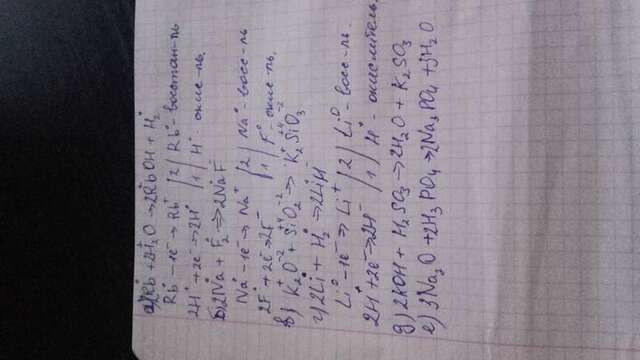 а) 2Rb⁰ + 2H₂⁺O → 2Rb⁺OH + H₂⁰
Rb⁰ - 1e⁻ → Rb⁺ | 2 | Rb⁰ - восстан-ль
2H⁺ + 2e → 2H⁰ | 1 | H⁺ - окис-ль.
б) 2Na⁰ + F₂⁰ → 2Na⁺F⁻
Na⁰ - 1e → Na⁺ | 2 | Na⁰ - восс-ль
2F + 2e → 2F⁻ | 1 | F⁰ - окис-ль.
в) K₂⁺O⁻² + Si⁺⁴O₂⁻² → K₂⁺Si⁺⁴O₃⁻²
г) 2Li⁰ + H₂⁰ → 2LiH
Li⁰ - 1e → Li⁺ | 2 | Li⁰ - восс-ль
2H⁰ + 2e → 2H⁻ | 1 | H⁰ - окислитель
д) 2KOH + H₂SO₃ → 2H₂O + K₂SO₃
е) 3Na₂O + 2H₃PO₄ → 2Na₃PO₄ + 3H₂O